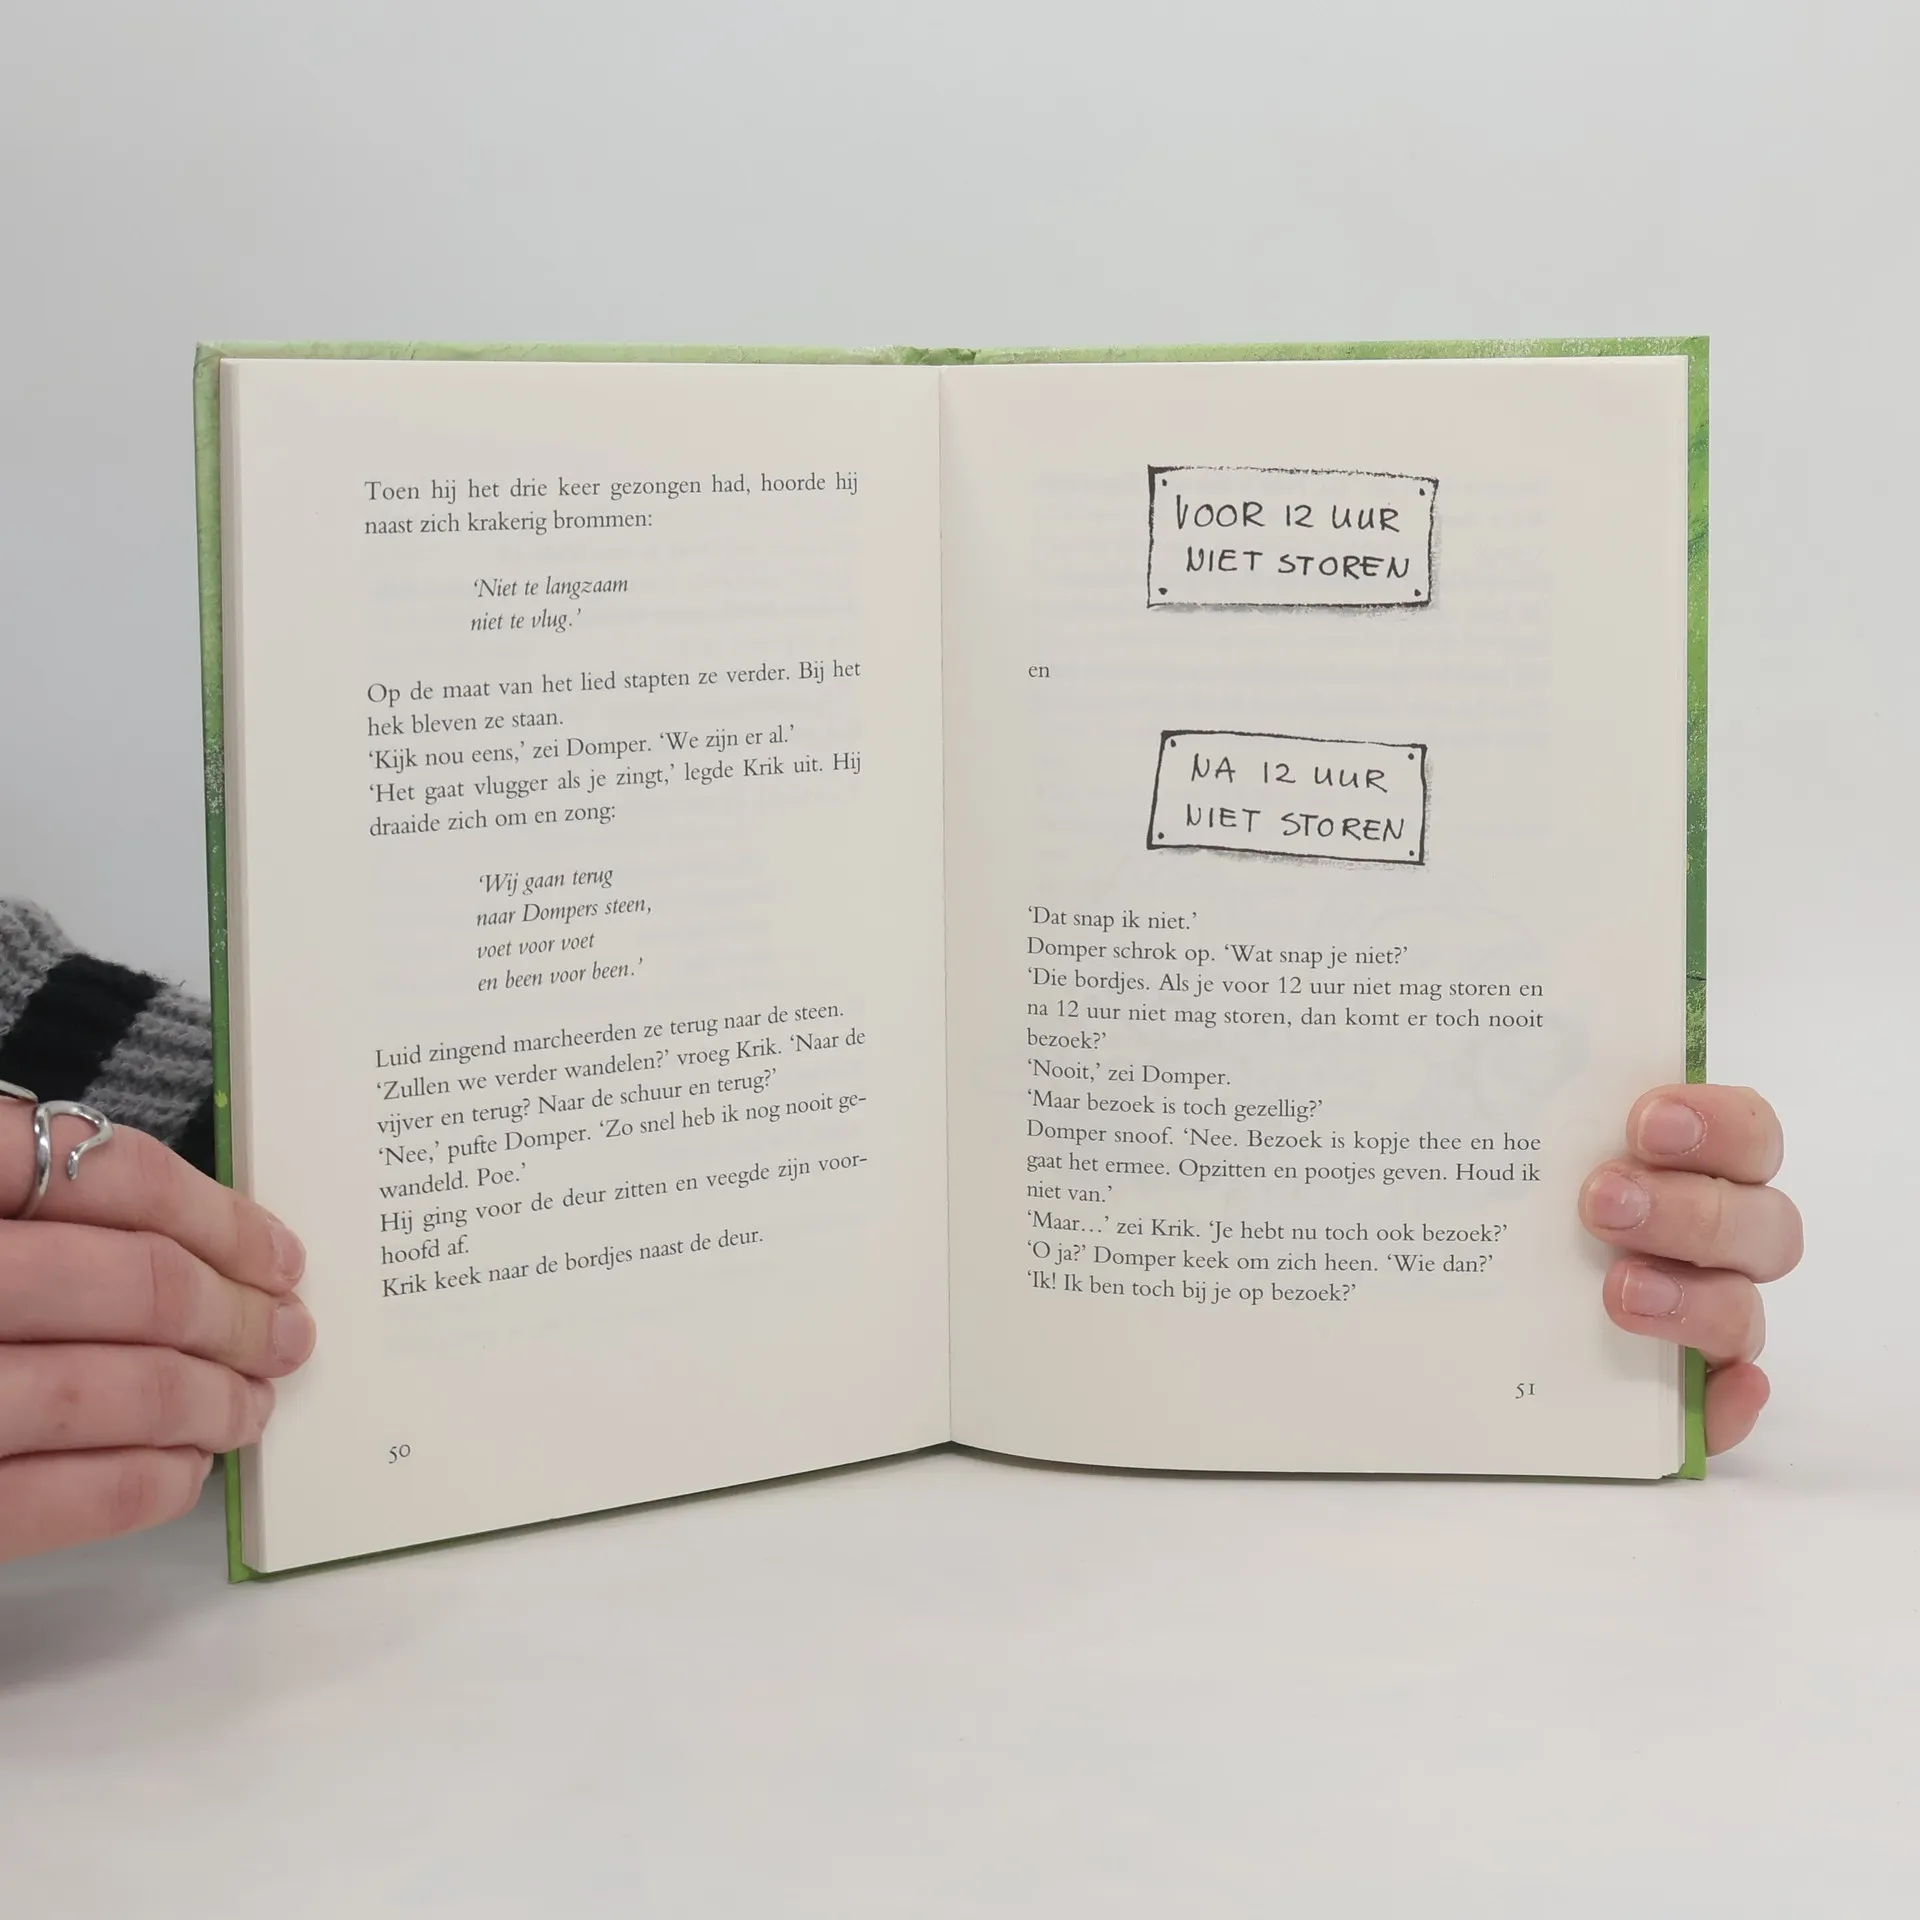 Toen hij het drie keer gezongen had, hoorde hij
naast zich krakerig brommen:
‘Niet te langzaam
niet te vlug.’
Op de maat van het lied stapten ze verder. Bij het
hek bleven ze staan.
‘Kijk nou eens,’ zei Domper. ‘We zijn er al.’
‘Het gaat vlugger als je zingt,’ legde Krik uit. Hij
draaide zich om en zong:
‘Wij gaan terug
naar Dompers steen,
voet voor voet
en been voor been.’
Luid zingend marcheerden ze terug naar de steen.
‘Zullen we verder wandelen?’ vroeg Krik. ‘Naar de
vijver en terug? Naar de schuur en terug?’
‘Nee,’ pufte Domper. ‘Zo snel heb ik nog nooit ge-
wandeld. Poe.’
Hij ging voor de deur zitten en veegde zijn voor-
hoofd af.
Krik keek naar de bordjes naast de deur.
50
VOOR 12 UUR
NIET STOREN
en
NA 12 UUR
NIET STOREN
‘Dat snap ik niet.’
Domper schrok op. ‘Wat snap je niet?’
‘Die bordjes. Als je voor 12 uur niet mag storen en
na 12 uur niet mag storen, dan komt er toch nooit
bezoek?’
‘Nooit,’ zei Domper.
‘Maar bezoek is toch gezellig?’
Domper snoof. ‘Nee. Bezoek is kopje thee en hoe
gaat het ermee. Opzitten en pootjes geven. Houd ik
niet van.’
‘Maar...’ zei Krik. ‘Je hebt nu toch ook bezoek?’
‘O ja?’ Domper keek om zich heen. ‘Wie dan?’
‘Ik! Ik ben toch bij je op bezoek?’
51